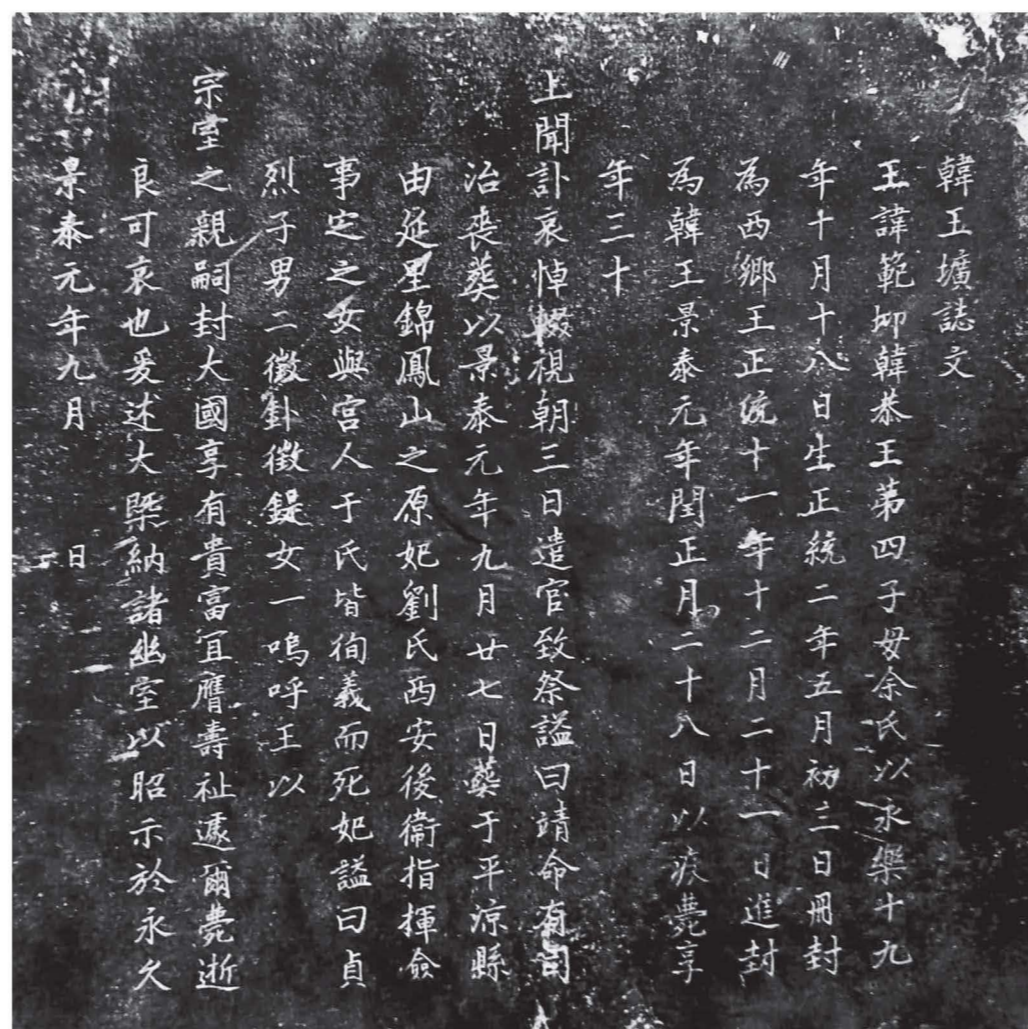 韓王壙誌文
王諱範卬韓恭王第四子母余氏以永樂十九
年十月十八日生正統二年五月初三日冊封
為西鄉王正統十一年十二月二十一日進封
為韓王景泰元年閏正月二十八日以疾薨享
年三十
上聞訃哀悼輟視朝三日遣官致祭謚曰靖命有司
治喪葬以景泰元年九月廿七日葬于平涼縣
由延里錦鳳山之原妃劉氏西安後衛指揮僉
事定之女與宮人于氏皆徇義而死妃謚曰貞
烈子男二徵釙徵鍉女一嗚呼王以
宗室之親嗣封大國享有貴富宜膺壽祉遽爾薨逝
良可哀也爰述大槩納諸幽室以昭示於永久
景泰元年九月 日